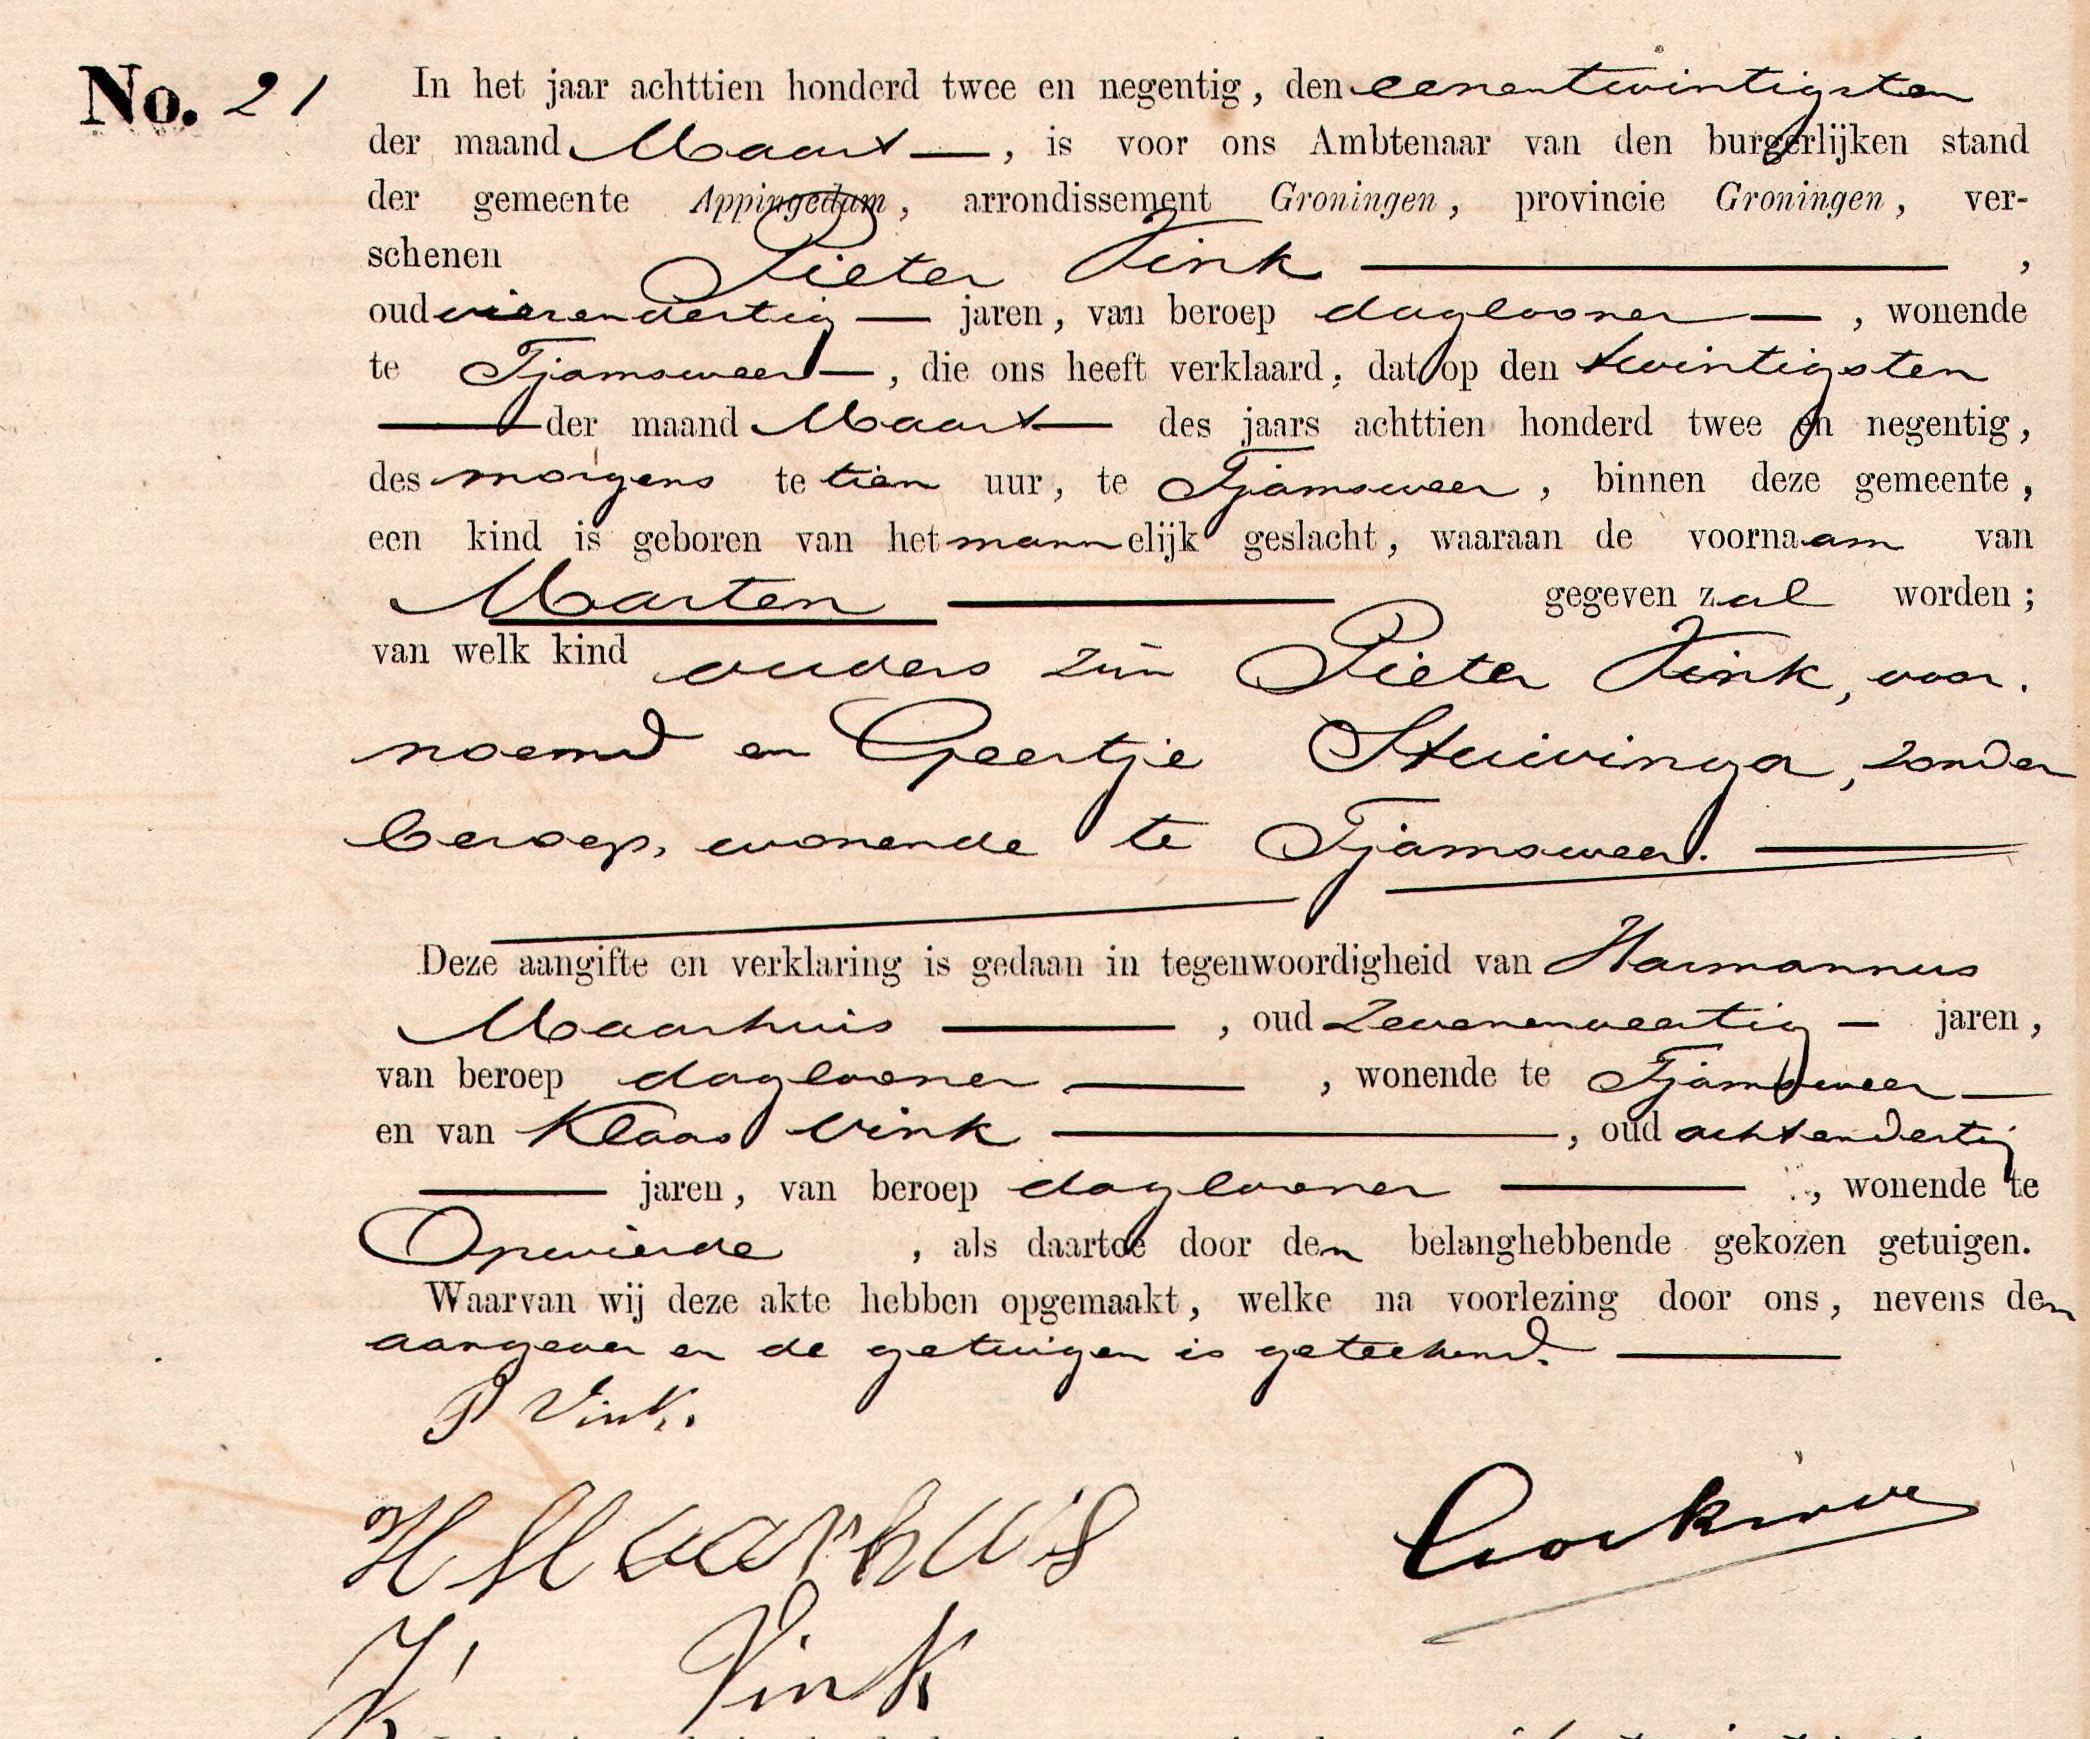 No. 21
In het jaar achttien honderd twee en negentig, den eenentwintigsten
der maand Maart —, is voor ons Ambtenaar van den burgerlijken stand
der gemeente Appingedam, arrondissement Groningen, provincie Groningen, ver-
schenen Pieter Vink — ,
oud vierendertig — jaren, van beroep daglooner — , wonende
te Tjamsweer —, die ons heeft verklaard, dat op den twintigsten
— der maand Maart — des jaars achttien honderd twee en negentig,
des morgens te tien uur, te Tjamsweer, binnen deze gemeente,
een kind is geboren van het mannelijk geslacht, waaraan de voornaam van
Marten — gegeven zal worden;
van welk kind ouders zijn Pieter Vink, voor.
noemd en Geertje Stuivinga, zonder
beroep, wonende te Tjamsweer. —
Deze aangifte en verklaring is gedaan in tegenwoordigheid van Harmannus
Maarhuis — , oud zevenenveertig — jaren,
van beroep daglooner — , wonende te Tjamsweer —
en van Klaas Vink —, oud achtendertig
— jaren, van beroep daglooner — , wonende te
Opwierde , als daartoe door den belanghebbende gekozen getuigen.
Waarvan wij deze akte hebben opgemaakt, welke na voorlezing door ons, nevens den
aangever en de getuigen is geteekend. —
P Vink.
H Maarhuis
K Vink